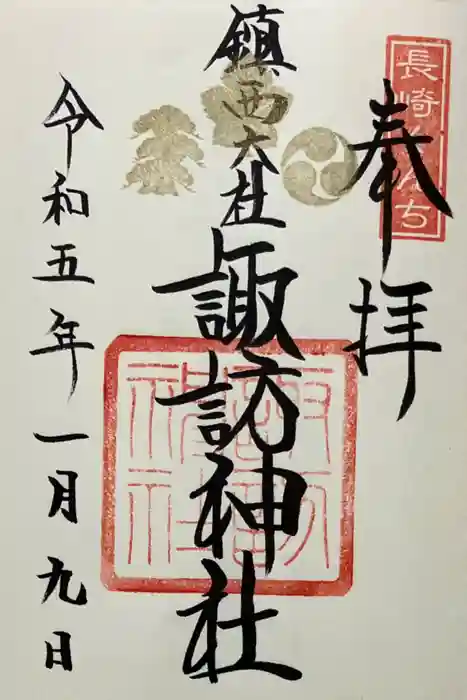 長崎くんち
奉拝
鎮西大社
諏訪神社
令和五年一月九日